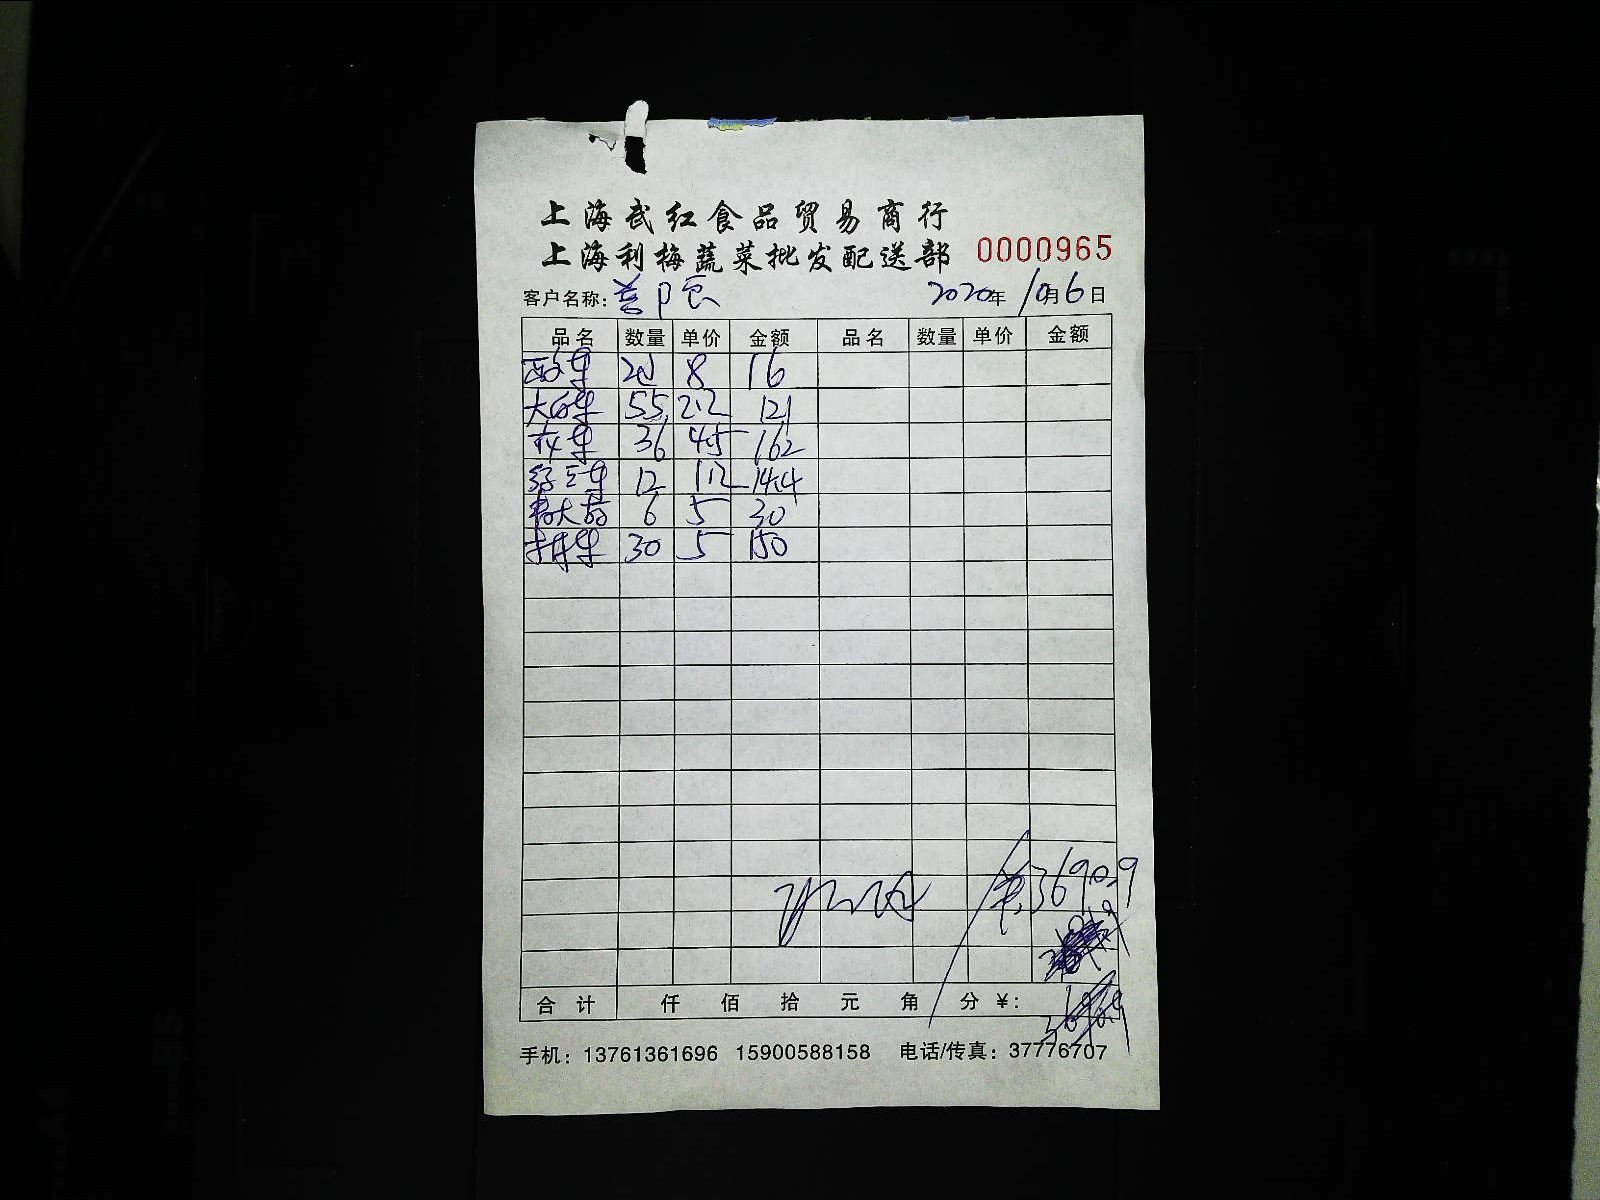 上海武红食品贸易商行
上海利梅蔬菜批发配送部 0000965
客户名称: 2020年10月6日
品名 数量 单价 金额 品名 数量 单价 金额
8 16
大白菜 55 2.2 121
花菜 36 4.5 162
12 1.2 14.4
6 5 30
30 5 150
3690.9
合计 仟 佰 拾 元 角 分 ¥:
手机: 13761361696 15900588158 电话/传真: 37776707